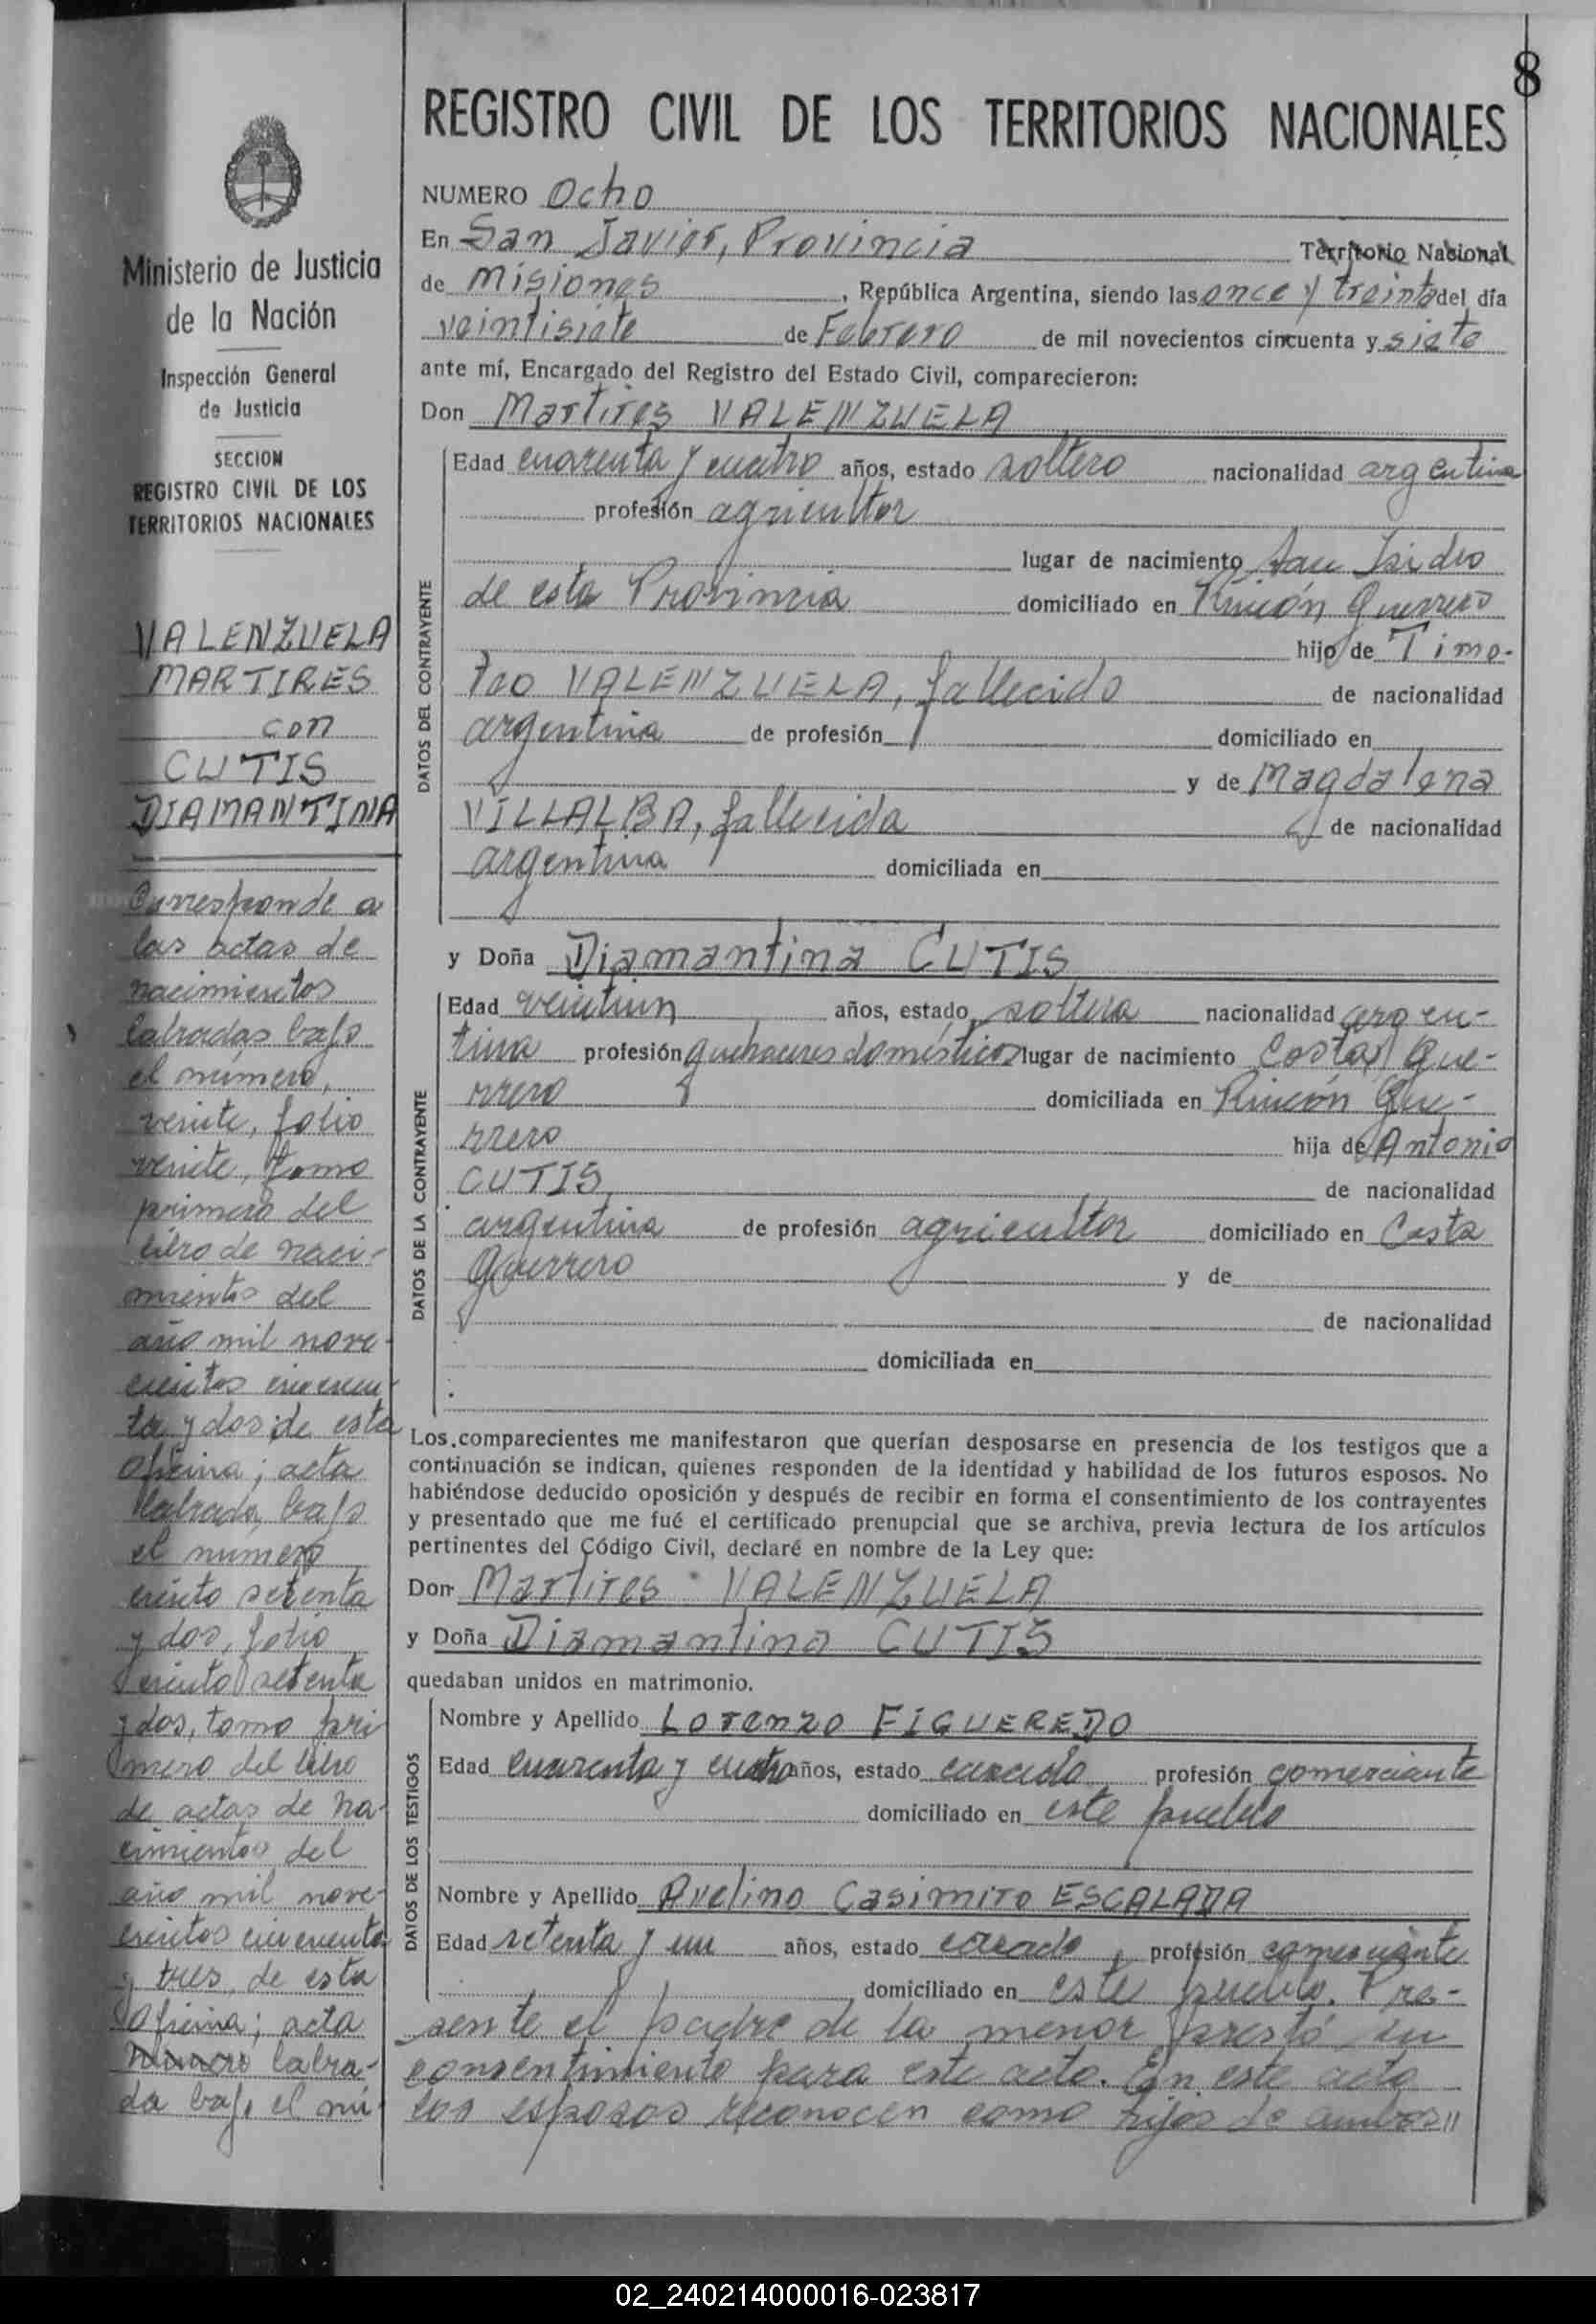 8
REGISTRO CIVIL DE LOS TERRITORIOS NACIONALES
NUMERO Ocho
En San Javier, Provincia Territorio Nacional
de Misiones, República Argentina, siendo las once y treinta del día
veintisiete de Febrero de mil novecientos cincuenta y siete
ante mí, Encargado del Registro del Estado Civil, comparecieron:
Don Martires VALENZUELA
DATOS DEL CONTRAYENTE
Edad cuarenta y cuatro años, estado soltero nacionalidad argentina
profesión agricultor
lugar de nacimiento San Isidro
de esta Provincia domiciliado en Rincón Guerrero
hijo de Timo-
teo VALENZUELA, fallecido de nacionalidad
argentina de profesión domiciliado en
y de Magdalena
VILLALBA, fallecida de nacionalidad
argentina domiciliada en
y Doña Diamantina CUTIS
DATOS DE LA CONTRAYENTE
Edad veintiun años, estado soltera nacionalidad argen-
tina profesión quehaceres domésticos lugar de nacimiento Costa Gue-
rrero domiciliada en Rincón Gue-
rrero hija de Antonio
CUTIS de nacionalidad
argentina de profesión agricultor domiciliado en Costa
Guerrero y de
de nacionalidad
domiciliada en
Los comparecientes me manifestaron que querían desposarse en presencia de los testigos que a
continuación se indican, quienes responden de la identidad y habilidad de los futuros esposos. No
habiéndose deducido oposición y después de recibir en forma el consentimiento de los contrayentes
y presentado que me fué el certificado prenupcial que se archiva, previa lectura de los artículos
pertinentes del Código Civil, declaré en nombre de la Ley que:
Don Martires VALENZUELA
y Doña Diamantina CUTIS
quedaban unidos en matrimonio.
DATOS DE LOS TESTIGOS
Nombre y Apellido Lorenzo FIGUEREDO
Edad cuarenta y cuatro años, estado casado profesión comerciante
domiciliado en este pueblo
Nombre y Apellido Avelino Casimiro ESCALADA
Edad setenta y un años, estado casado, profesión comerciante
domiciliado en este pueblo. Pre-
sente el padre de la menor prestó su
consentimiento para este acto. En este acto
los esposos reconocen como hijos de ambos"
Ministerio de Justicia
de la Nación
Inspección General
de Justicia
SECCION
REGISTRO CIVIL DE LOS
TERRITORIOS NACIONALES
VALENZUELA
MARTIRES
con
CUTIS
DIAMANTINA
Corresponde a
las actas de
nacimientos
labradas bajo
el número,
veinte, folio
veinte, tomo
primero del
libro de naci-
mientos del
año mil nove-
cientos cincuen-
ta y dos de esta
Oficina; acta
labrada bajo
el numero
ciento setenta
y dos, folio
ciento setenta
y dos, tomo pri
mero del libro
de actas de na-
cimientos del
año mil nove-
cientos cincuenta
y tres, de esta
Oficina; acta
número labra-
da bajo el nú-
02_240214000016-023817